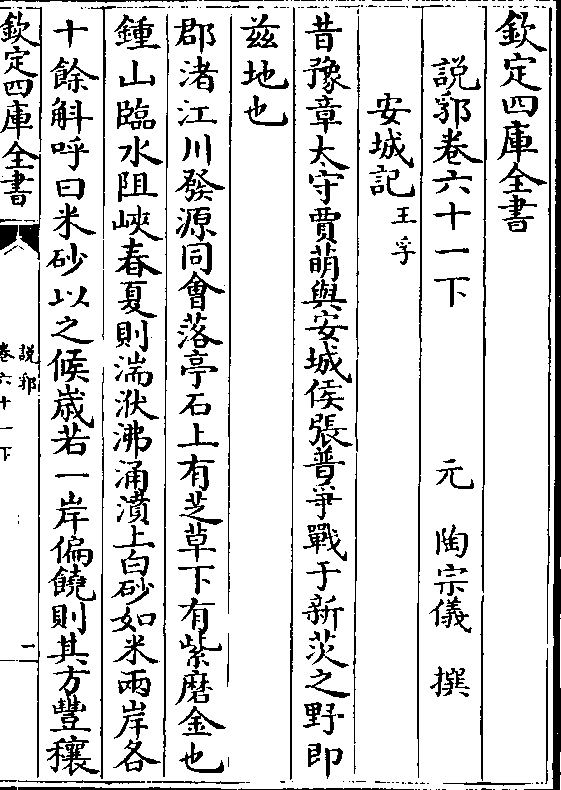 欽定四庫全書
說郛卷六十一下　元　陶宗儀　撰
安城記王孚
昔豫章太守賈萌與安城侯張普爭戰于新茨之野即
兹地也
郡渚江川發源同會落亭石上有芝草下有紫磨金也
鍾山臨水阻峽春夏則湍洑沸涌濆上白砂如米兩岸各
十餘斛呼曰米砂以之候歲若一岸偏饒則其方豐穰
欽定四庫全書
說郛
卷六十一下
一